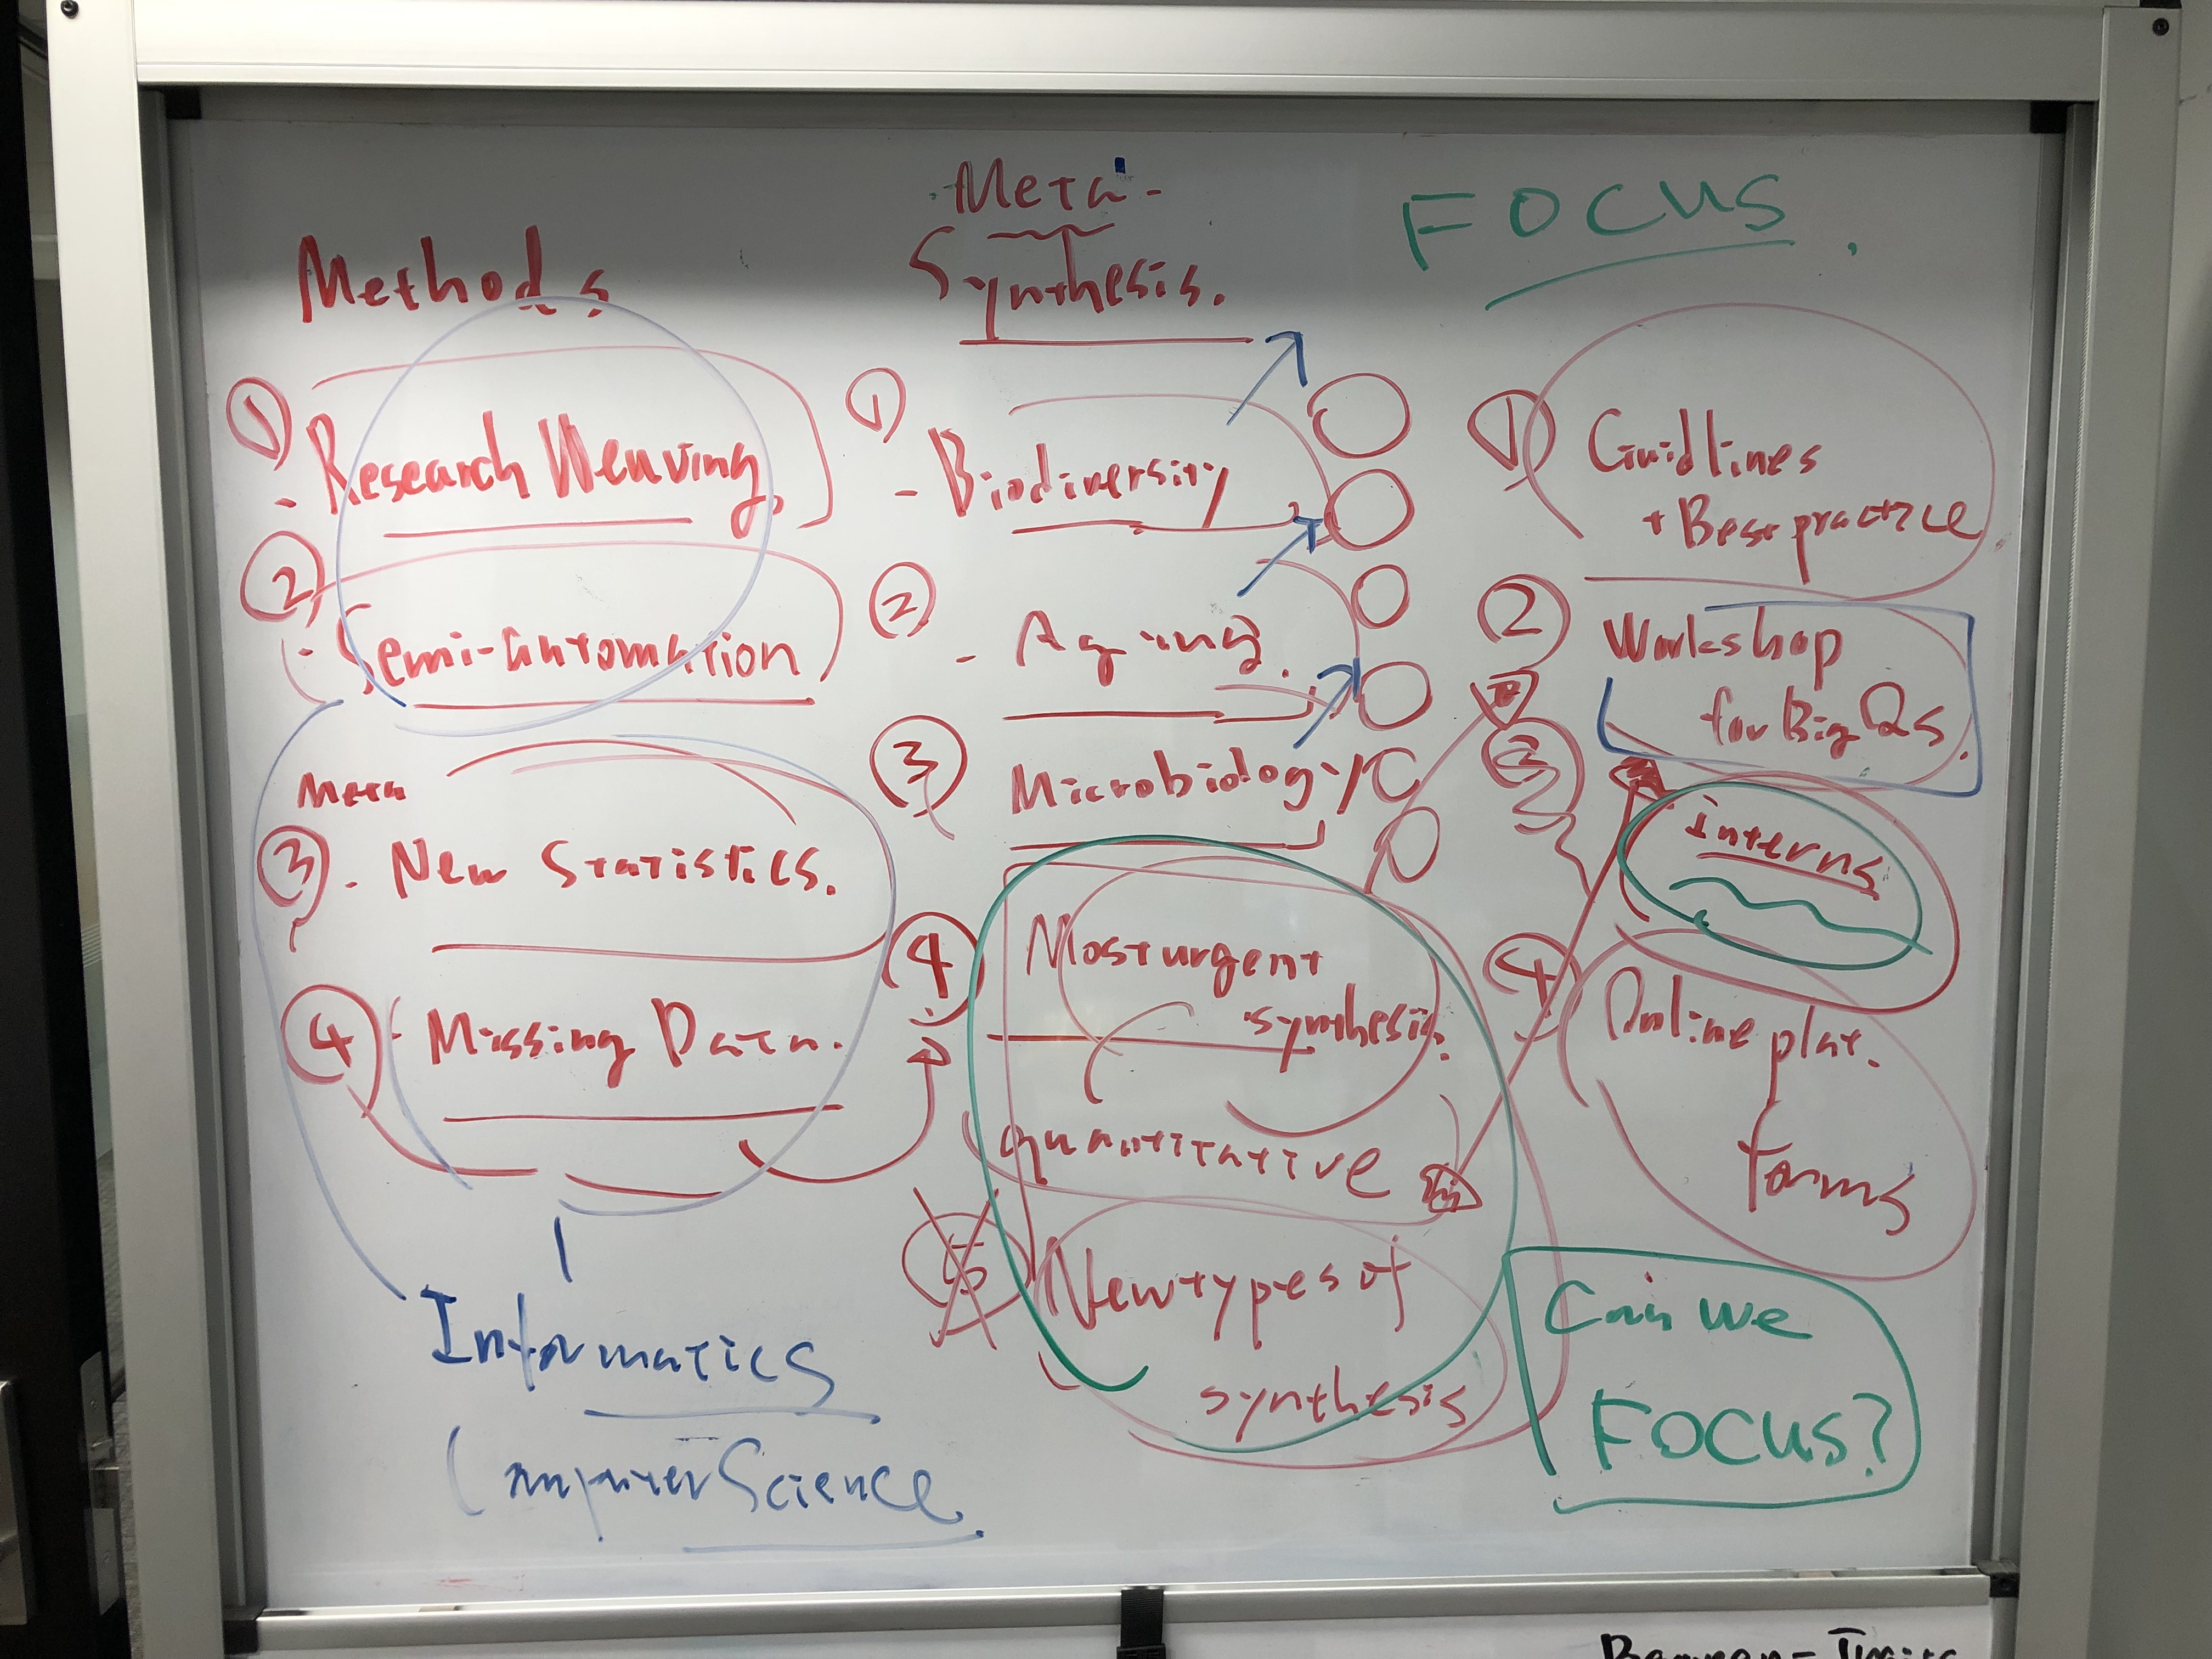 Methods
① - Research Weaving.
② - Semi-automation
Meta
③ - New Statistics.
④ - Missing Data.
Informatics
Computer Science
Meta-
Synthesis.
① - Biodiversity
② - Aging.
③ Microbiology
④ Most urgent
synthesis.
quantitative
⑤ New types of
synthesis
FOCUS
① Guidlines
+ Best practice
② Workshop
for Big Qs.
③ interns
④ Online plat.
forms
Can we
FOCUS?